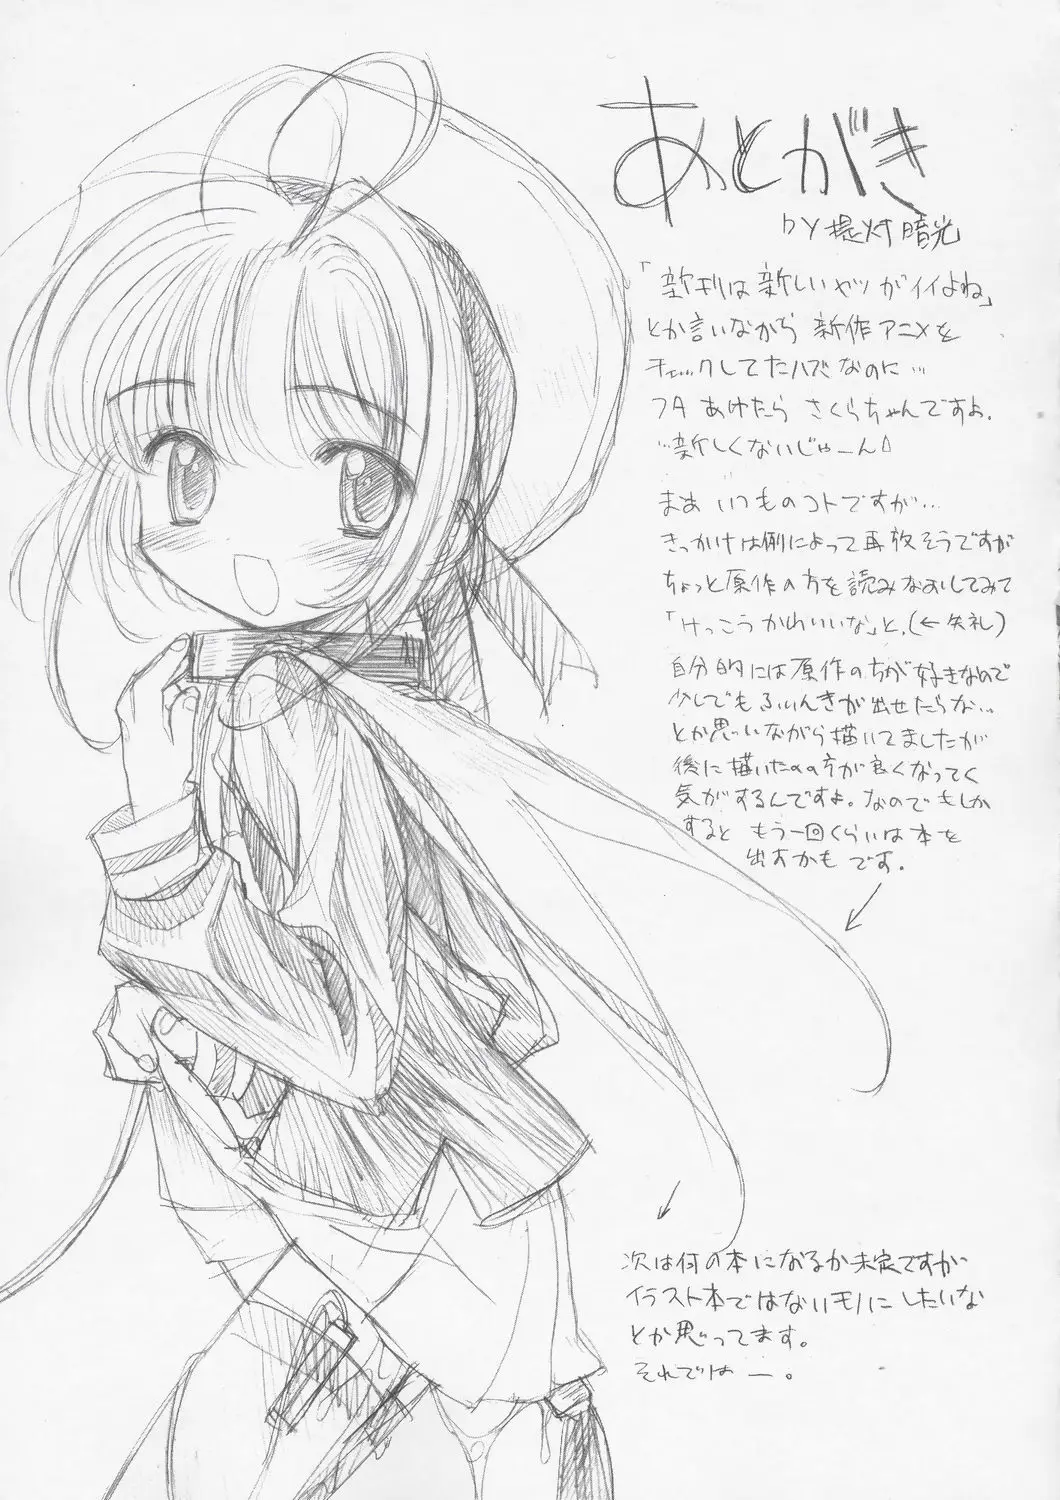 あとがき
by 提灯暗光
「新刊は新しいヤツがイイよね」
とか言いながら 新作アニメを
チェックしてたハズなのに…
フタ あけたら さくらちゃんですよ.
…新しくないじゃーん
まあ いつものコトですが…
きっかけは例によって再放そうですが
ちょっと原作の方を読みなおしてみて
「けっこうかわいいな」と.(←失礼)
自分的には原作のちが好きなので
少しでもふいんきが出せたらな…
とか思いながら描いてましたが
後に描いたのの方が良くなってく
気がするんですよ。なのでもしか
すると もう一回くらいは本を
出すかも です.
次は何の本になるか未定ですが
イラスト本ではないモノにしたいな
とか思ってます。
それではー。